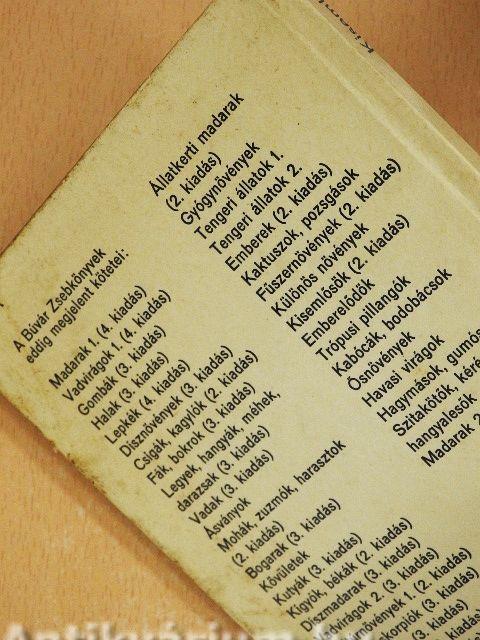 A Búvár Zsebkönyvek
eddig megjelent kötetei:
Madarak 1. (4. kiadás)
Vadvirágok 1. (4. kiadás)
Gombák (3. kiadás)
Halak (3. kiadás)
Lepkék (4. kiadás)
Dísznövények (3. kiadás)
Csigák, kagylók (2. kiadás)
Fák, bokrok (3. kiadás)
Legyek, hangyák, méhek,
darazsak (3. kiadás)
Vadak (3. kiadás)
Ásványok
Mohák, zuzmók, harasztok
(2. kiadás)
Bogarak (3. kiadás)
Kövületek
Kutyák (3. kiadás)
Kígyók, békák (2. kiadás)
Díszmadarak (3. kiadás)
2. (3. kiadás)
1. (2. kiadás)
(3. kiadás)
Állatkerti madarak
(2. kiadás)
Gyógynövények
Tengeri állatok 1.
Tengeri állatok 2.
Emberek (2. kiadás)
Kaktuszok, pozsgások
Fűszernövények (2. kiadás)
Különös növények
Kisemlősök (2. kiadás)
Emberelődök
Trópusi pillangók
Kabócák, bodobácsok
Ősnövények
Havasi virágok
Hagymások,
Szitakötők,
hangyalesők
Madarak